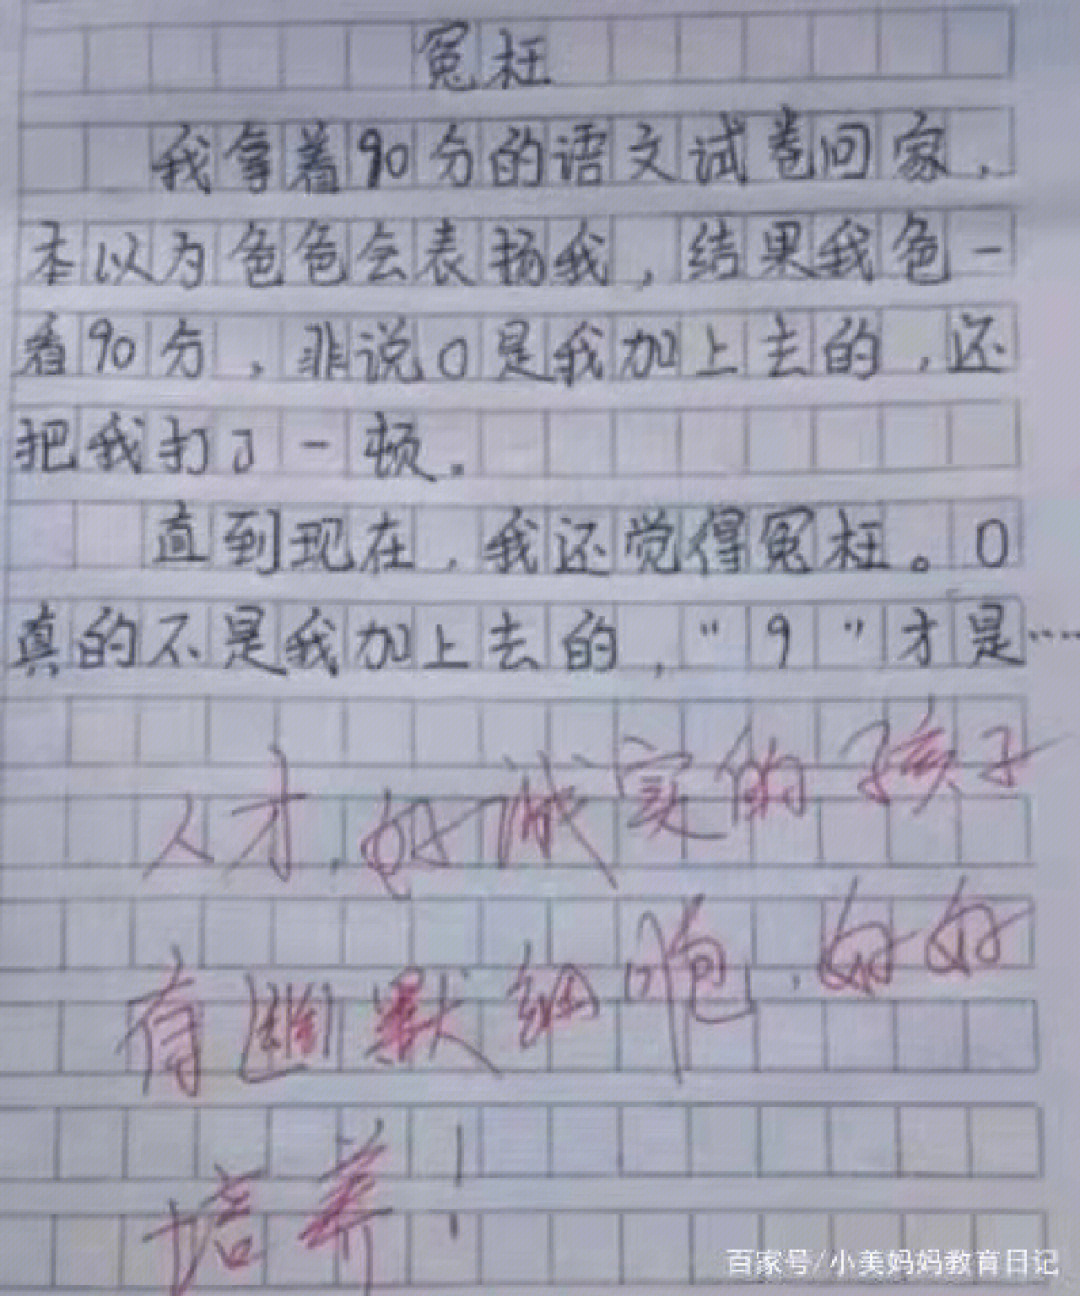 冤枉
我拿着90分的语文试卷回家,
本以为爸爸会表扬我,结果我爸一
看90分,非说0是我加上去的,还
把我打了一顿。
直到现在,我还觉得冤枉。0
真的不是我加上去的,“9”才是……
人才,好诚实的孩子
有幽默细胞,好好
培养!
百家号/小美妈妈教育日记